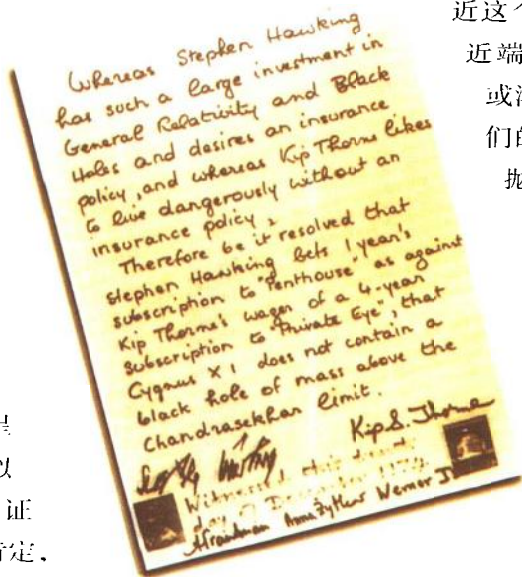 近这个
近端
或
们的
抛
Whereas Stephen Hawking
has such a large investment in
General Relativity and Black
Holes and desires an insurance
policy, and whereas Kip Thorne likes
to live dangerously without an
insurance policy,
Therefore be it resolved that
Stephen Hawking bets 1 year's
subscription to "Penthouse" as against
Kip Thorne's wager of a 4-year
subscription to "Private Eye", that
Cygnus X1 does not contain a
black hole of mass above the
Chandrasekhar limit.
Kip S. Thorne
Witnessed this
day of December
Anna Żytkow Werner
以
证
定,